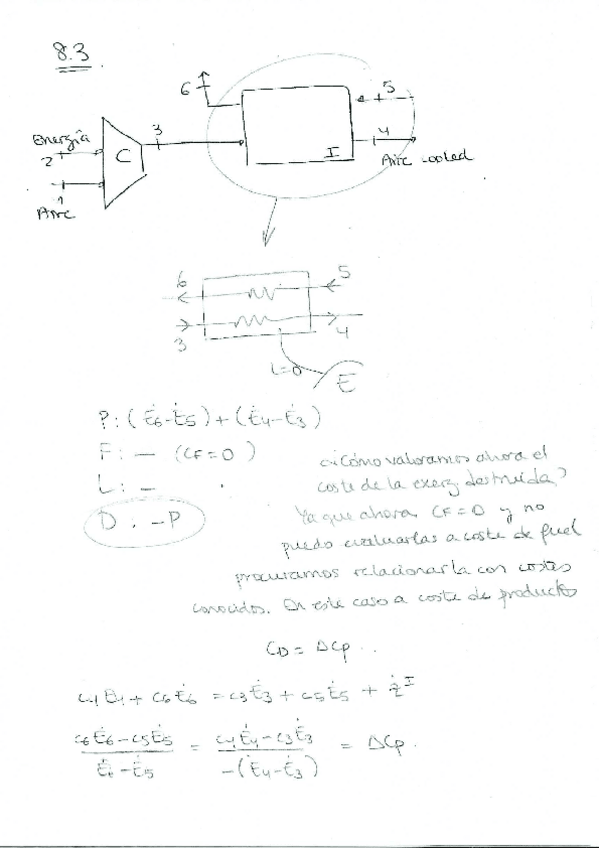 8.3
6
5
3
4
Energía
2
C
I
Aire cooled
1
Aire
6
5
3
4
L=0
E
P: (Ė6-Ė5)+(Ė4-Ė3)
F: — (CF=0)
L: —
D: -P
¿Cómo valoramos ahora el
coste de la exerg. destruida?
Ya que ahora CF=0 y no
puedo evaluarlas a coste de fuel
procuramos relacionarla con costes
conocidos. En este caso a coste de productos
CD = ΔCp..
c4Ė4 + c6Ė6 = c3Ė3 + c5Ė5 + Ż^I
(c6Ė6-c5Ė5)/(Ė6-Ė5) = (c4Ė4-c3Ė3)/(-(Ė4-Ė3)) = ΔCp.